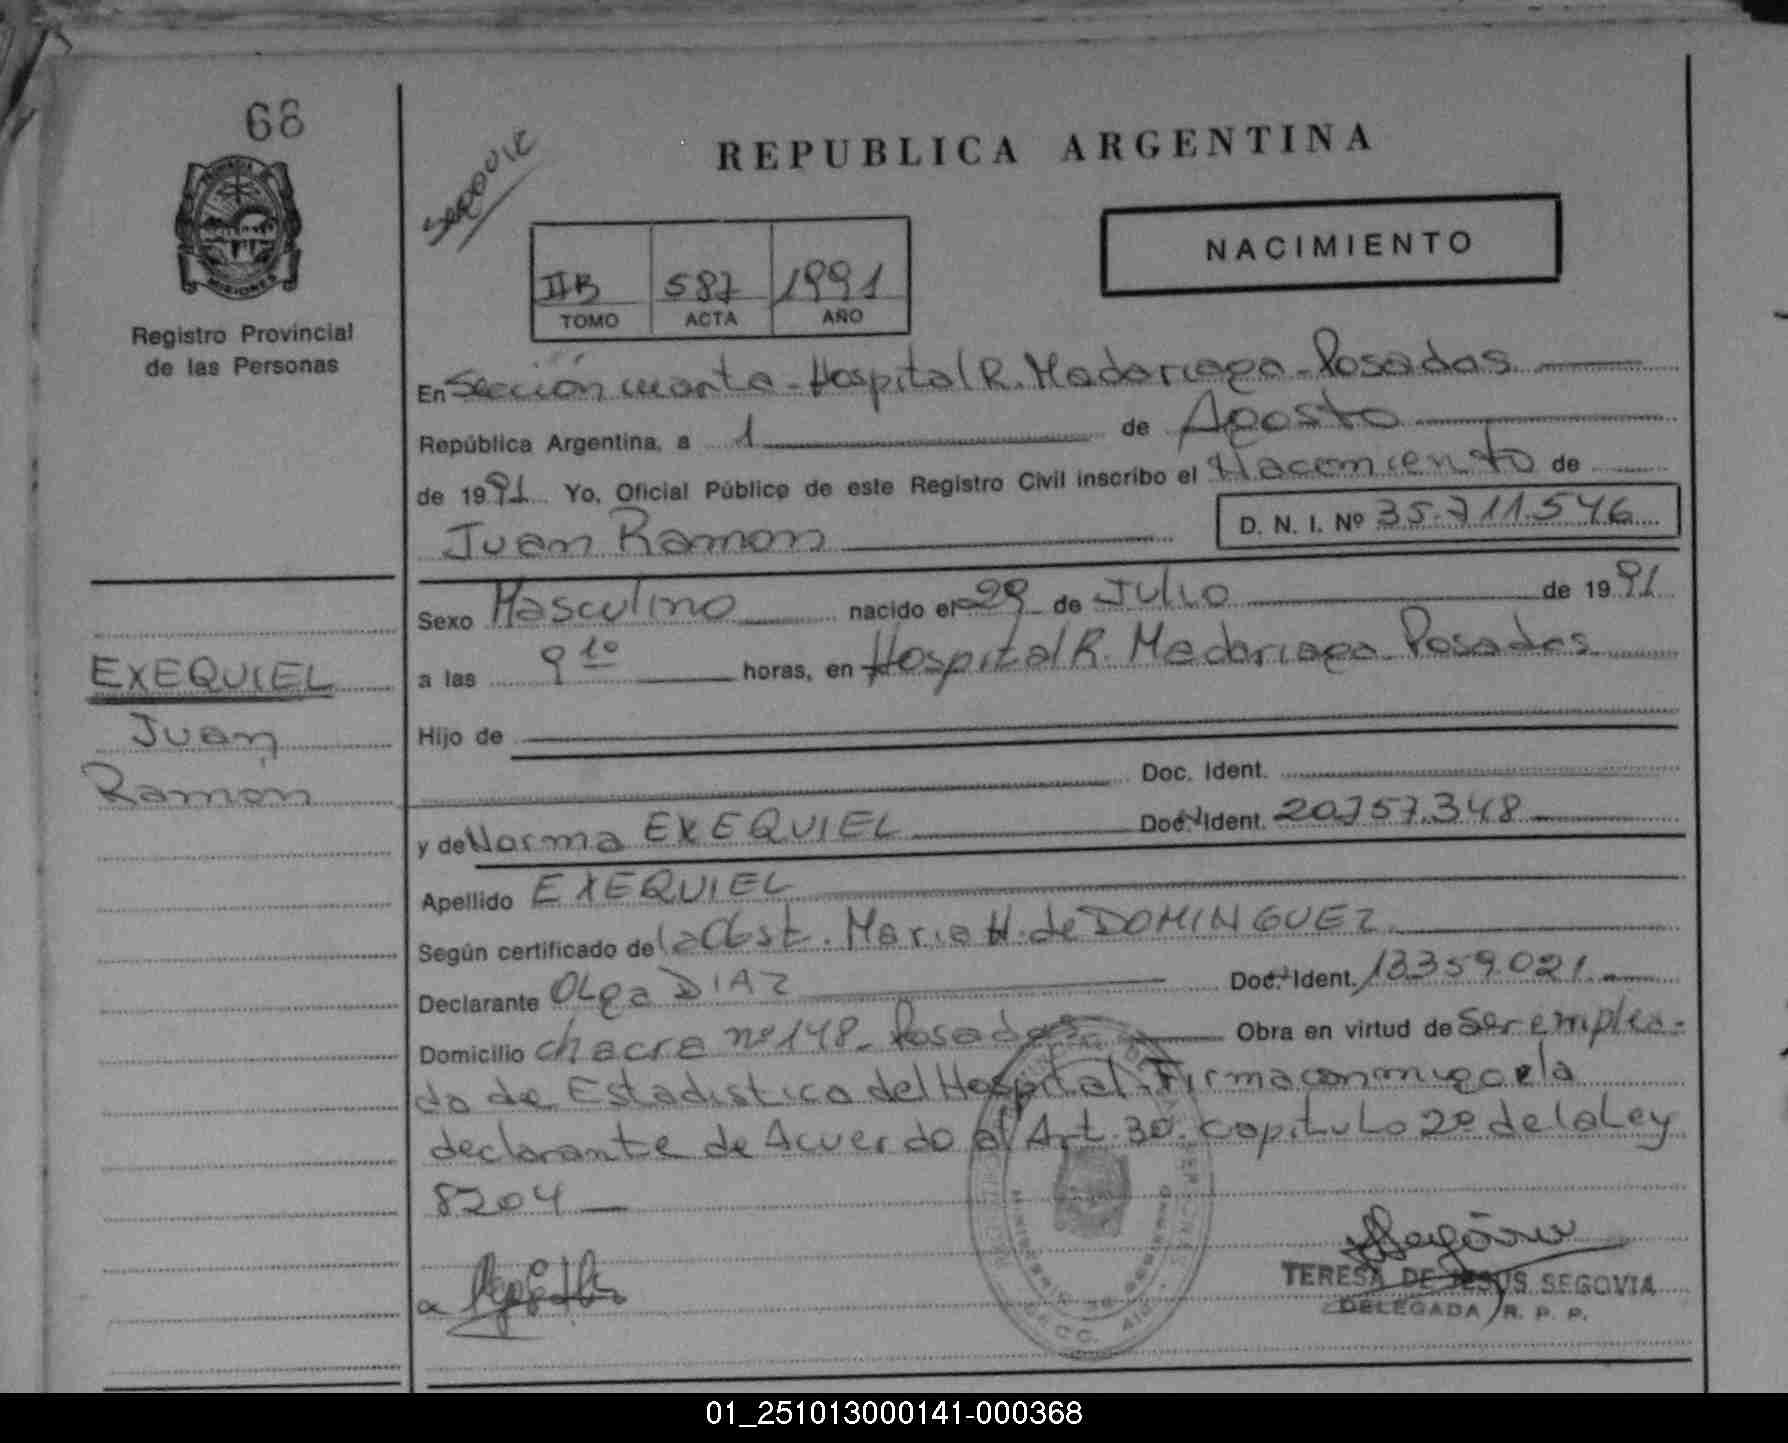 68
REPUBLICA ARGENTINA
NACIMIENTO
IIB 587 1991
TOMO ACTA AÑO
MISIONES
Registro Provincial
de las Personas
En Sección cuarta - Hospital R. Madariaga - Posadas
República Argentina, a 1 de Agosto
de 1991 Yo, Oficial Público de este Registro Civil inscribo el Nacimiento de
Juan Ramon D. N. I. Nº 35.711.546
Sexo Masculino nacido el 29 de Julio de 1991
a las 9 10 horas, en Hospital R. Madariaga Posadas
EXEQUIEL
Juan
Ramón
Hijo de
Doc. Ident.
y de Norma EXEQUIEL Doc. Ident. 20.757.348
Apellido EXEQUIEL
Según certificado de la Obst. Maria H. de DOMINGUEZ
Declarante Olga DIAZ Doc. Ident. 13359.021
Domicilio chacra nº 148 - Posadas Obra en virtud de ser emplea-
da de Estadistica del Hospital. Firma conmigo la
declarante de Acuerdo al Art. 30. Capitulo 2º de la Ley
8204
TERESA DE JESUS SEGOVIA
DELEGADA R. P. P.
01_251013000141-000368